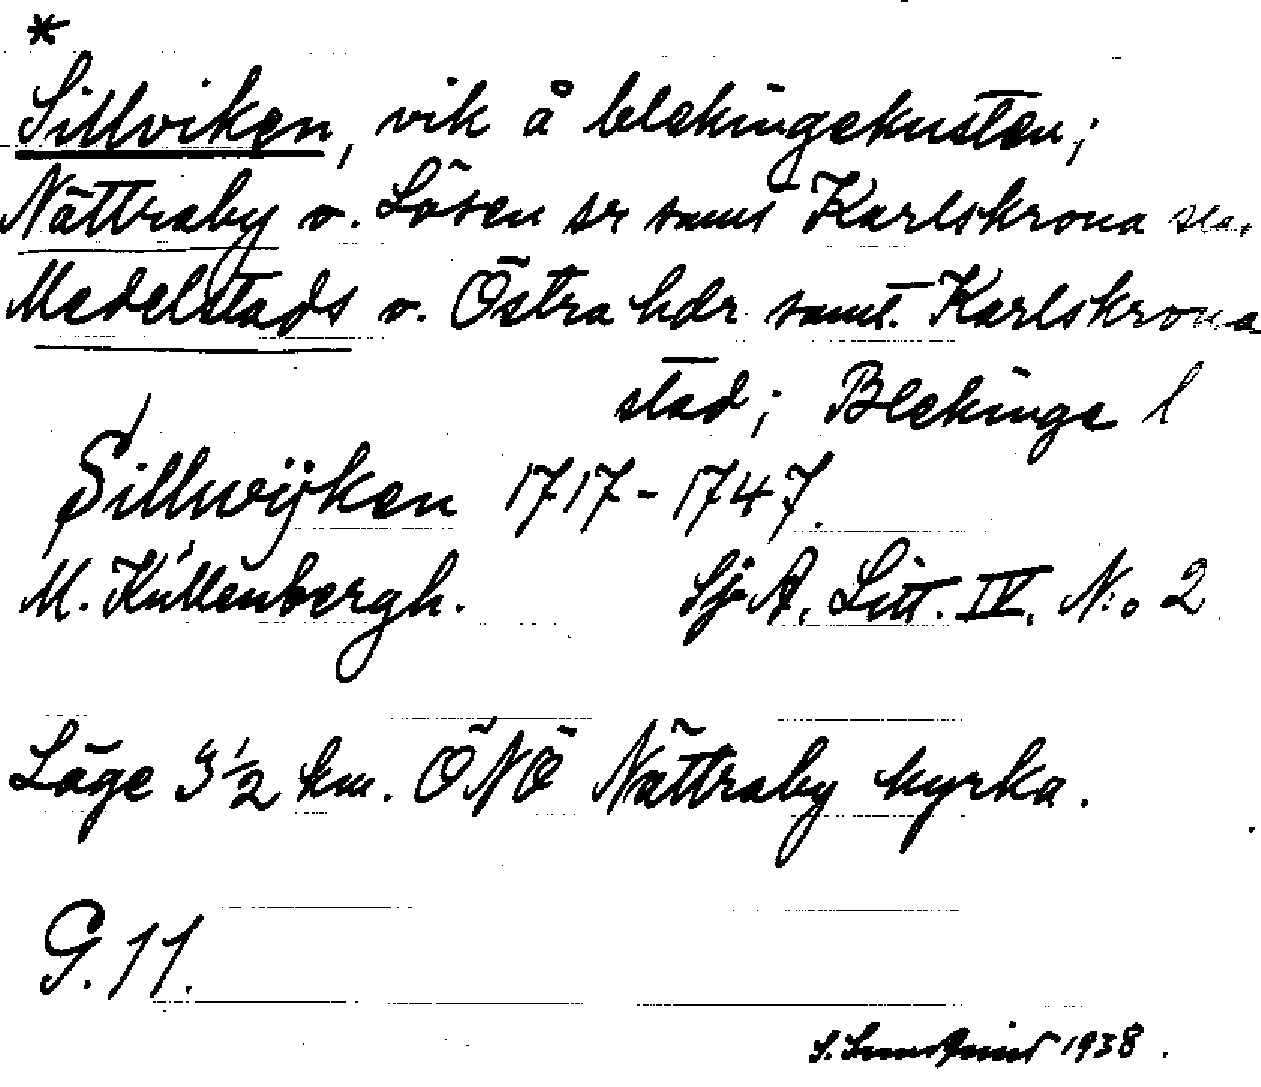 *
Sillviken, vik å blekingekusten;
Nättraby o. Lösen sr samt Karlskrona sta.
Medelstads o. Östra hdr samt. Karlskrona
stad; Blekinge l
Sillwijken 1717-1747.
M. Küllenbergh. SjA. Litt. IV. N:o 2
Läge 3 1/2 km. ÖNÖ Nättraby kyrka.
G. 11.
S. 1938.